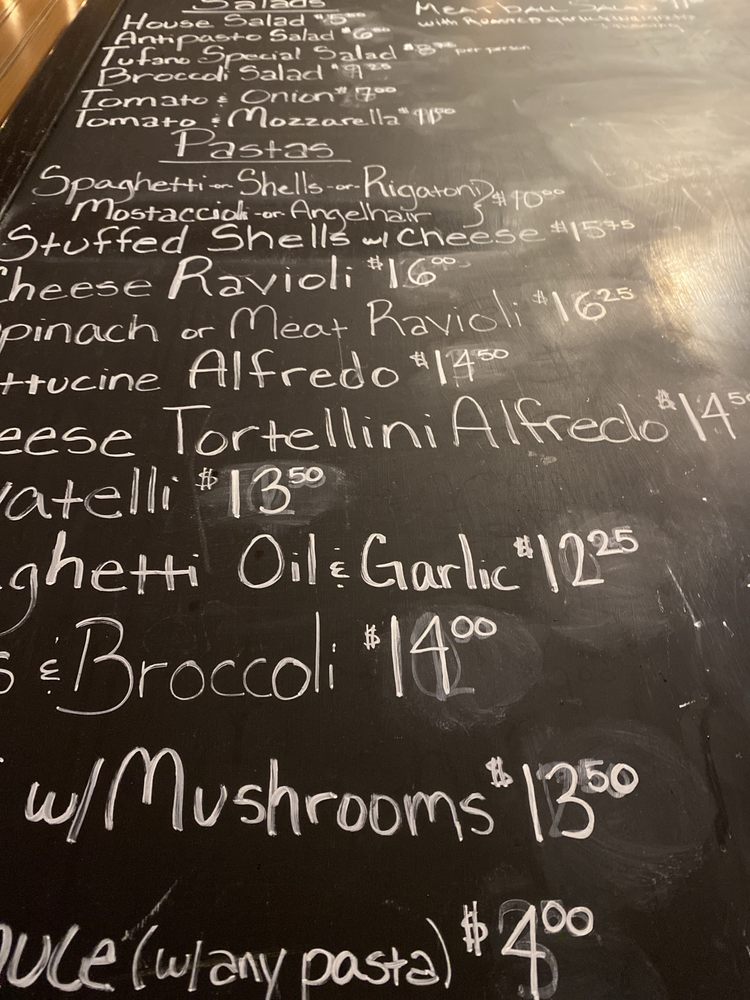 Salads
House Salad $5
Antipasto Salad $6
Tufano Special Salad $8 per person
Broccoli Salad $9.25
Tomato & Onion $7.00
Tomato & Mozzarella $11.50
Meatball Salad
with Roasted Garlic
Pastas
Spaghetti-or-Shells-or-Rigatoni
Mostaccioli-or-Angelhair } $10.00
Stuffed Shells w/ Cheese $15.75
Cheese Ravioli $16.00
pinach or Meat Ravioli $16.25
ttucine Alfredo $14.50
eese Tortellini Alfredo $14.5
vatelli $13.50
ghetti Oil & Garlic $12.25
s & Broccoli $14.00
w/Mushrooms $13.50
auce (w/any pasta) $4.00